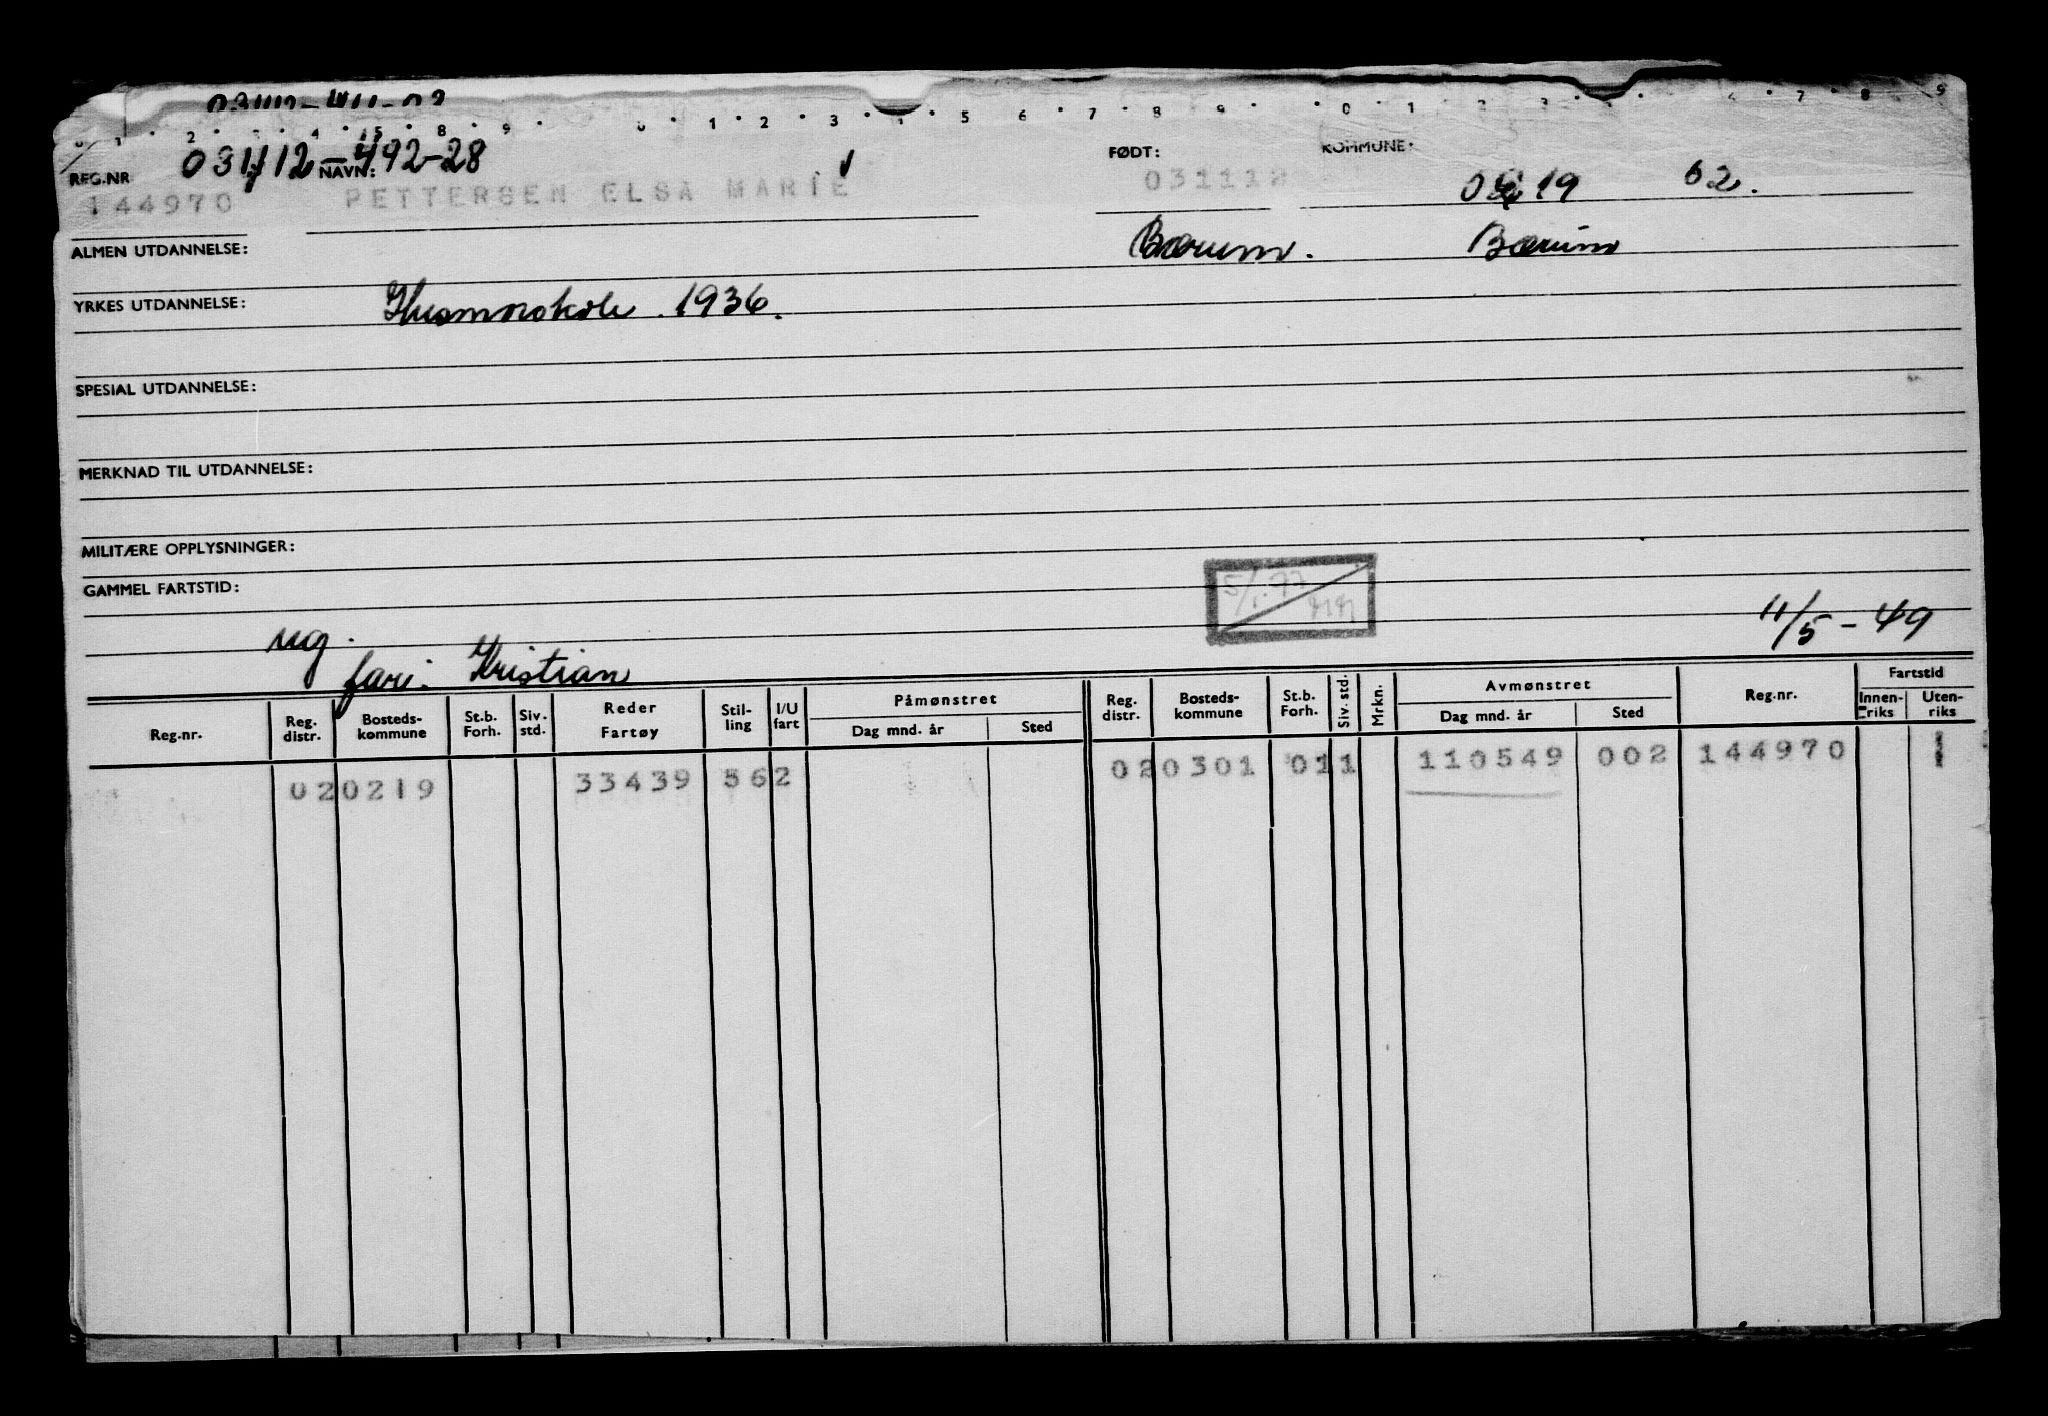 0 1 2 3 4 5 8 9 0 1 2 3 4 5 6 7 8 9 0 1 2 3 4 7 8 9
REG.NR 031112-492-28 NAVN: FØDT: KOMMUNE:
144970 PETTERSEN ELSA MARIE 031112 0219 62.
ALMEN UTDANNELSE: Bærum. Bærum
YRKES UTDANNELSE: 1936.
SPESIAL UTDANNELSE:
MERKNAD TIL UTDANNELSE:
MILITÆRE OPPLYSNINGER:
GAMMEL FARTSTID: 5/1.77
ug. 11/5-49
far: Kristian
Reg.nr. Reg. distr. Bosteds-kommune St.b. Forh. Siv. std. Reder Fartøy Stil-ling I/U fart Påmønstret Dag mnd. år Sted Reg. distr. Bosteds-kommune St.b. Forh. Siv. std. Mrkn. Avmønstret Dag mnd. år Sted Reg.nr. Fartstid Innen-riks Uten-riks
020219 33439 562 020301 011 110549 002 144970 1